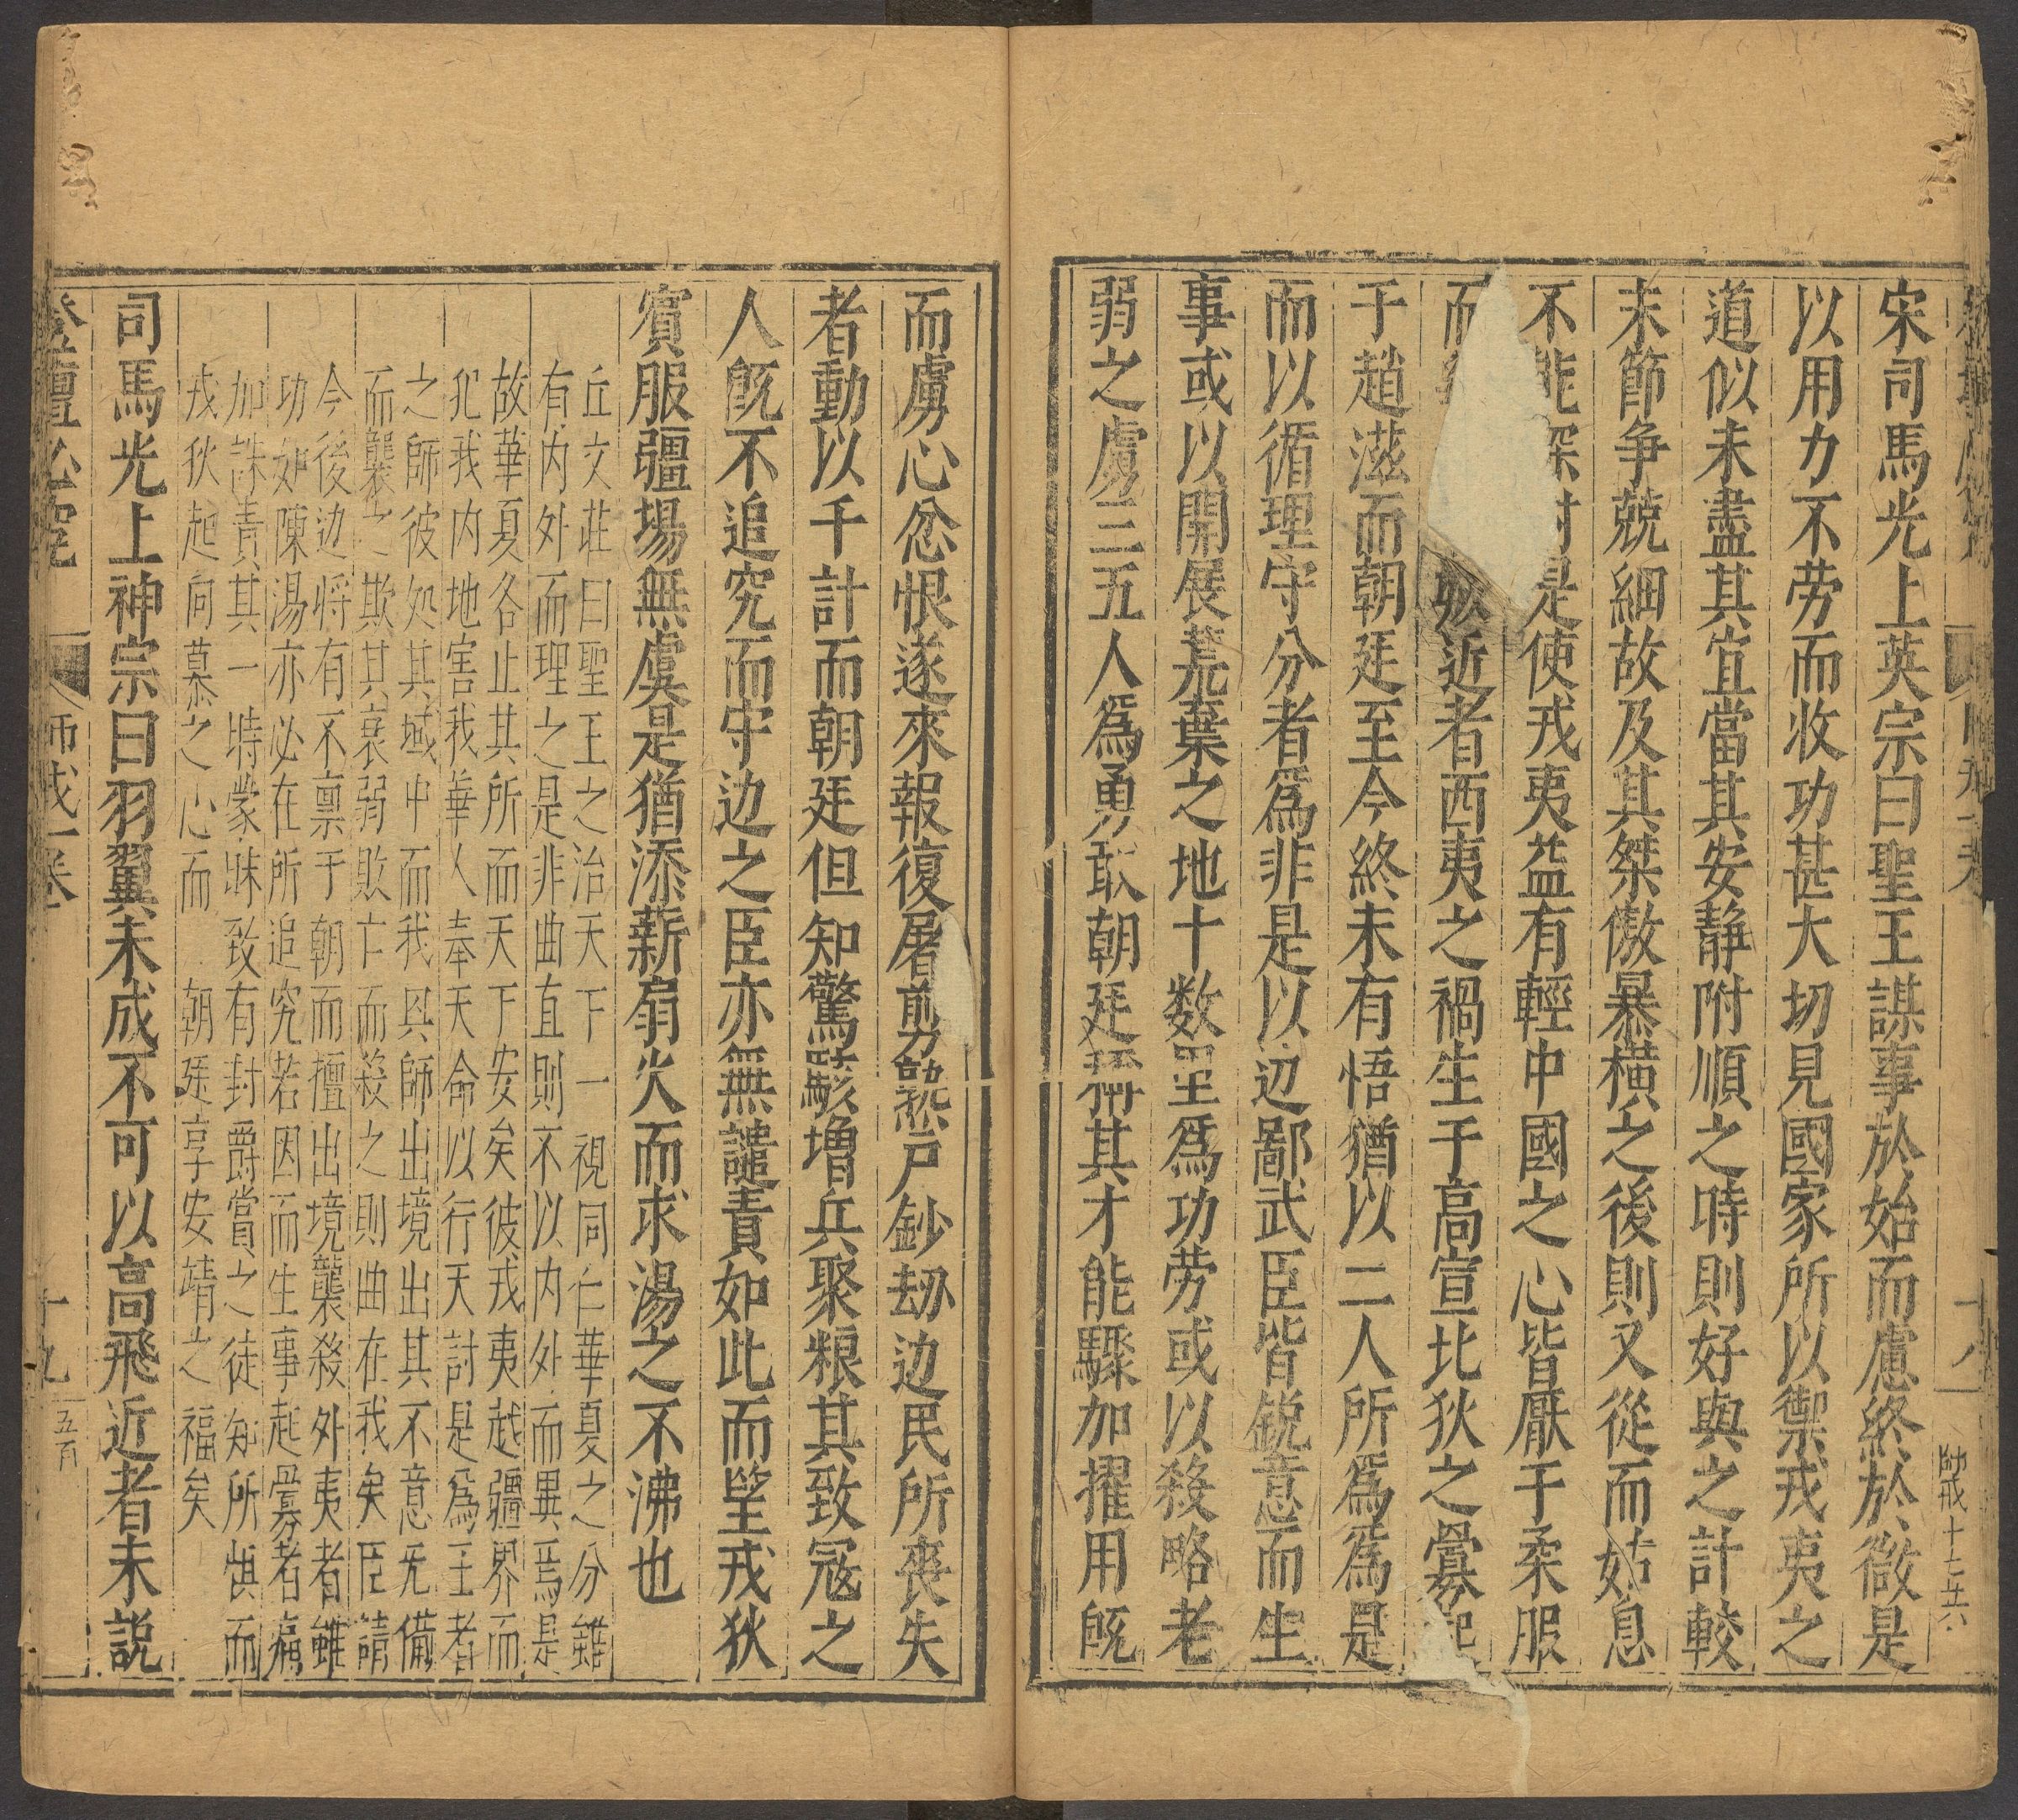 宋司馬光上英宗曰聖王謀事於始而慮終於微是
以用力不劳而收功甚大切見國家所以禦戎夷之
道似未盡其宜當其安静附順之時則好與之計較
末節争兢細故及其桀傲暴橫之後則又從而姑息
不能深討是使戎夷益有輕中國之心皆厭于柔服
而 近者西夷之禍生于高宣北狄之釁起
于趙滋而朝廷至今終未有悟猶以二人所爲爲是
而以循理守分者爲非是以边鄙武臣皆鋭意而生
事或以開展荒棄之地十数里爲功劳或以殺略老
弱之虜三五人爲勇敢朝廷稱其才能驟加擢用旣
帥戒十七五六
而虜心忿恨遂來報復屠剪熟戸鈔刼边民所喪失
者動以千計而朝廷但知驚駭增兵聚粮其致冦之
人旣不追究而守边之臣亦無譴責如此而望戎狄
賓服疆場無虞是猶添薪扇火而求湯之不沸也
丘文莊曰聖王之治天下一視同仁華夏之分雖
有内外而理之是非曲直則不以内外而異焉是
故華夏各止其所而天下安矣彼戎夷越疆界而
犯我内地害我華人奉天命以行天討是爲王者
之師彼処其域中而我興師出境出其不意无備
而襲之欺其衰弱敗亡而殺之則曲在我矣臣請
今後边将有不禀于朝而擅出境襲殺外夷者雖
功如陳湯亦必在所追究若因而生事起釁者痛
加誅責其一時蒙昧致有封爵賞之徒知所惧而
戎狄起向慕之心而 朝廷享安靖之福矣
司馬光上神宗曰羽翼未成不可以高飛近者未説
登壇必究 帥戒一卷 十九 五百